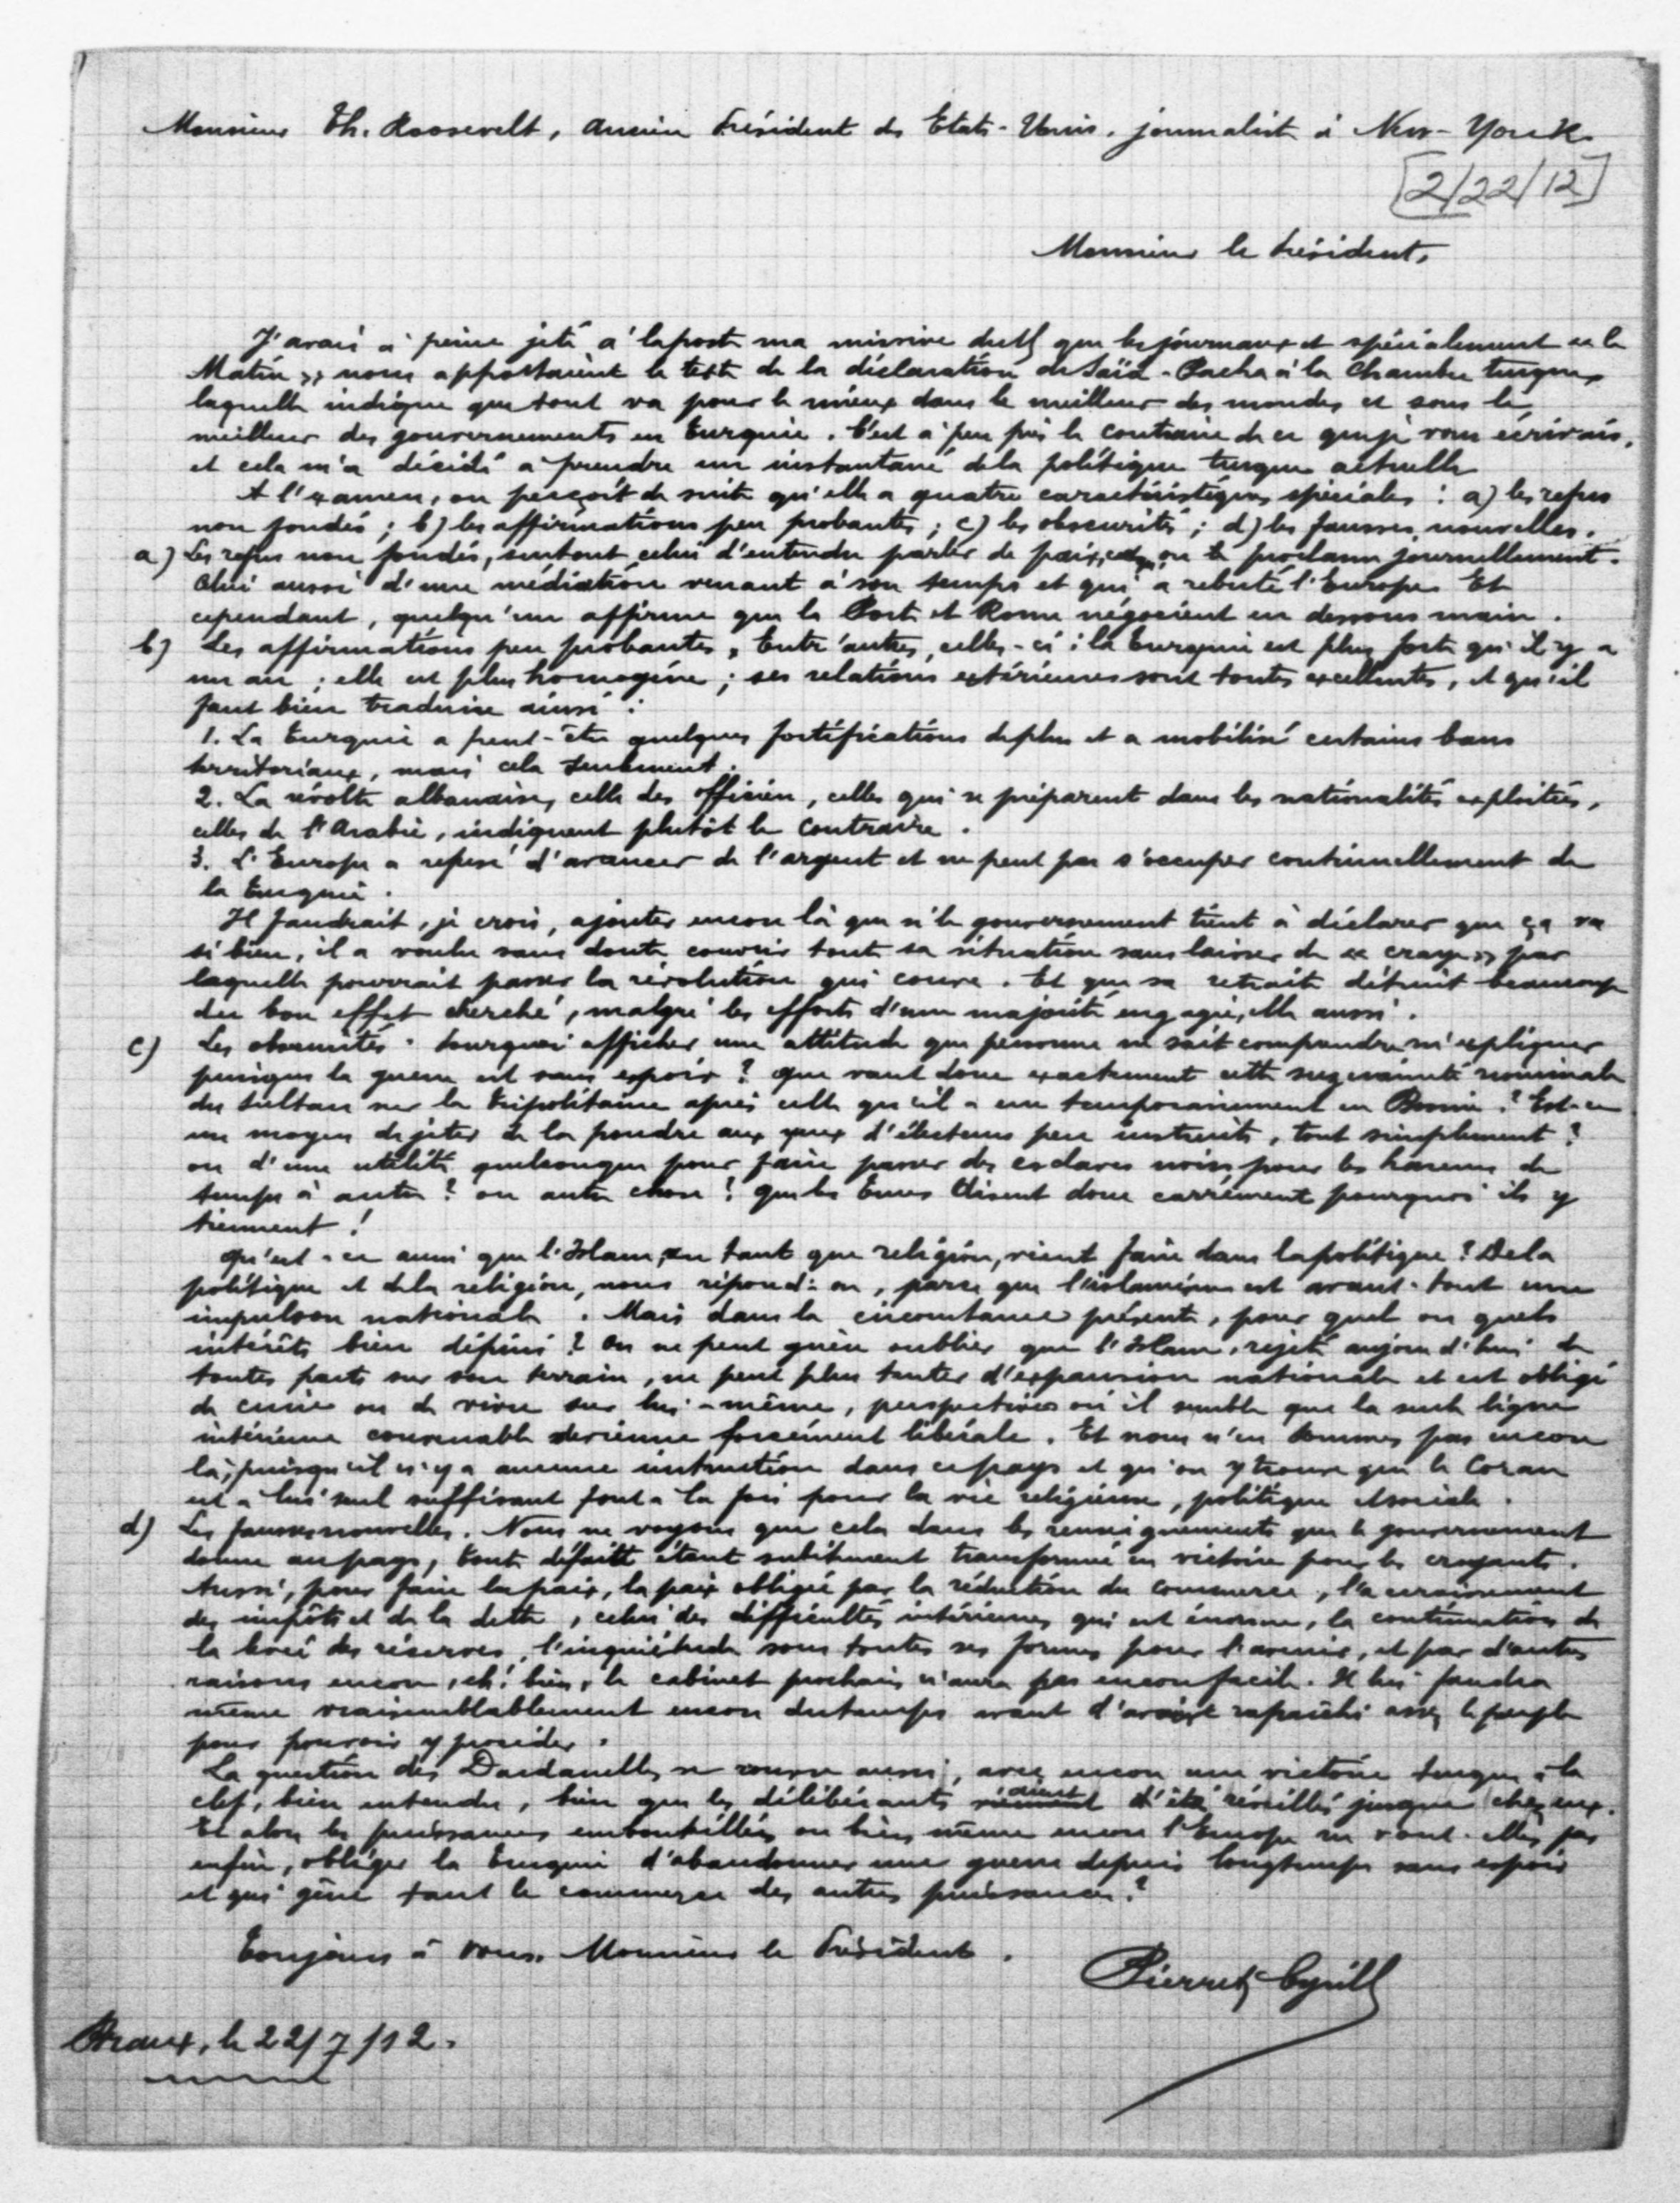 Monsieur Th. Roosevelt, ancien Président des Etats-Unis, journaliste à New-Yorck
[2/22/12]
Monsieur le Président,
J'avais à peine jeté à la poste ma missive du que les journaux et spécialement « le
Matin » nous apportaient le texte de la déclaration de Saïd-Pacha à la Chambre turque,
laquelle indique que tout va pour le mieux dans le meilleur des mondes et sous le
meilleur des gouvernements en Turquie. C'est à peu près le contraire de ce que je vous écrivais,
et cela m'a décidé à prendre un instantané de la politique turque actuelle
A l'examen, on perçoit de suite qu'elle a quatre caractéristiques spéciales : a) les refus
non fondés ; b) les affirmations peu probantes ; c) les obscurités ; d) les fausses nouvelles.
a) Les refus non fondés, surtout celui d'entendre parler de paix, on le proclame journellement.
Celui aussi d'une médiation venant à son temps et qui a rebuté l'Europe. Et
cependant, quelqu'un affirme que la Porte et Rome négocient en dessous main.
b) Les affirmations peu probantes, Entr'autres, celles-ci : la Turquie est plus forte qu'il y a
un an ; elle est plus homogène ; ses relations extérieures sont toutes excellentes, et qu'il
faut bien traduire ainsi :
1. La Turquie a peut-être quelques fortifications de plus et a mobilisé certains bans
territoriaux, mais cela seulement.
2. La révolte albanaise, celle des officiers, celles qui se préparent dans les nationalités exploitées,
celles de l'Arabie, indiquent plutôt le contraire.
3. L'Europe a refusé d'avancer de l'argent et ne peut pas s'occuper continuellement de
la Turquie.
Il faudrait, je crois, ajouter encore là que si le gouvernement tient à déclarer que ça va
si bien, il a voulu sans doute couvrir toute sa situation sans laisser de par
laquelle pourrait passer la révolution qui couve. Et que sa retraite détruit beaucoup
du bon effet cherché, malgré les efforts d'une majorité engagée, elle aussi.
c) Les obscurités. Pourquoi afficher une attitude que personne ne sait comprendre ni expliquer
puisque la guerre est sans espoir ? Que vaut donc exactement cette suzeraineté nominale
du Sultan sur la Tripolitaine après celle qu'il a eue temporairement en Bosnie ? Est-ce
un moyen de jeter de la poudre aux yeux d'électeurs peu instruits, tout simplement ?
ou d'une utilité quelconque pour faire passer des esclaves noirs pour les harems de
temps à autre ? ou autre chose ? Que les Turcs disent donc carrément pourquoi ils y
tiennent !
Qu'est-ce aussi que l'Islam, en tant que religion, vient faire dans la politique ? De la
politique et de la religion, nous répond-on, parce que l'islamisme est avant-tout une
impulsion nationale. Mais dans la circonstance présente, pour quel ou quels
intérêts bien définis ? On ne peut guère oublier que l'Islam, rejeté aujourd'hui de
toutes parts sur son terrain, ne peut plus tenter d'expansion nationale et est obligé
de ou de vivre sur lui-même, perspectives où il semble que la seule ligne
intérieure convenable devienne forcément libérale. Et nous n'en sommes pas encore
là, puisqu'il n'y a aucune instruction dans ce pays et qu'on y trouve que le Coran
est à lui seul suffisant tout à la fois pour la vie religieuse, politique et sociale.
d) Les fausses nouvelles. Nous ne voyons que cela dans les renseignements que le gouvernement
donne au pays, toute défaite étant subitement transformée en victoire pour les croyants.
Aussi, pour faire la paix, la paix obligée par la réduction du commerce, l'accroissement
des impôts et de la dette, celui des difficultés intérieures qui est énorme, la continuation de
la levée des réserves, l'inquiétude sous toutes ses formes pour l'avenir, et par d'autres
raisons encore, eh! bien, le cabinet prochain n'aura pas encore facile. Il lui faudra
même vraisemblablement encore du temps avant d'avoir rafraîchi assez le peuple
pour pouvoir y procéder.
La question des Dardanelles se rouvre aussi, avec encore une victoire turque à la
clef, bien entendu, bien que les délibérants aient d'été réveillés jusque chez eux.
Et alors les puissances embouteillées ou bien même encore l'Europe ne vont-elles pas
enfin, obliger la Turquie d'abandonner une guerre depuis longtemps sans espoir
et qui gêne tant le commerce des autres puissances ?
Toujours à vous, Monsieur le Président.
Pierret Cyrill
Braux, le 22/7/12.